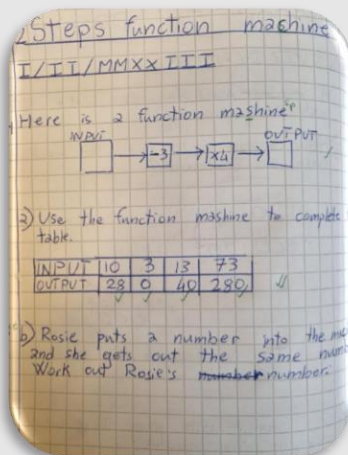 2 Steps function machine
I/II/MMXXIII
Here is a function mashine
INPUT OUTPUT
-3 ×4
a) Use the function mashine to complete
table.
INPUT 10 3 13 73
OUTPUT 28 0 40 280
b) Rosie puts a number into the
and she gets out the same
Work out Rosie's number number.